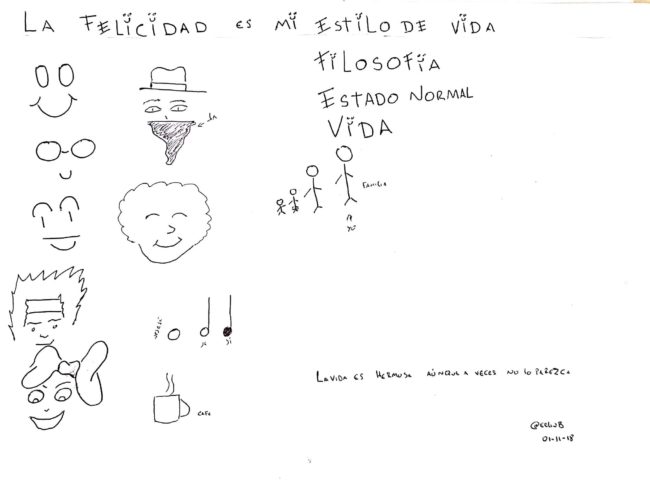 LA FELICIDAD ES MI ESTILO DE VIDA
FILOSOFIA
ESTADO NORMAL
VIDA
FAMILIA
YO
SI
CAFE
LA VIDA ES HERMOSA AÚNQUE A VECES NO LO PAREZCA
01-11-18